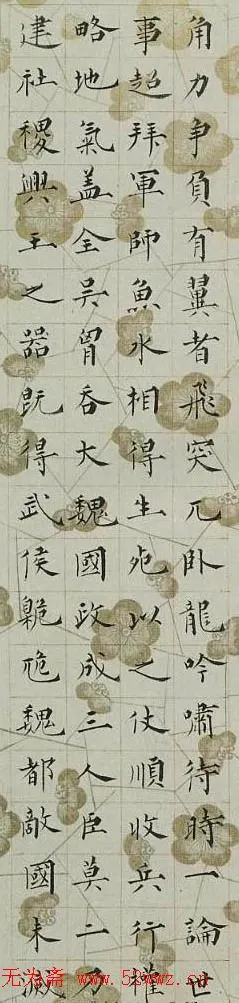 角力争負有翼者飛突兀卧龍吟嘯待時一論世
事超拜軍師魚水相得生死以之仗順收兵行權
略地氣盖全吳胷吞大魏國政成三人臣莫二乃
建社稷興王之器既得武侯臲卼魏都敵國未滅